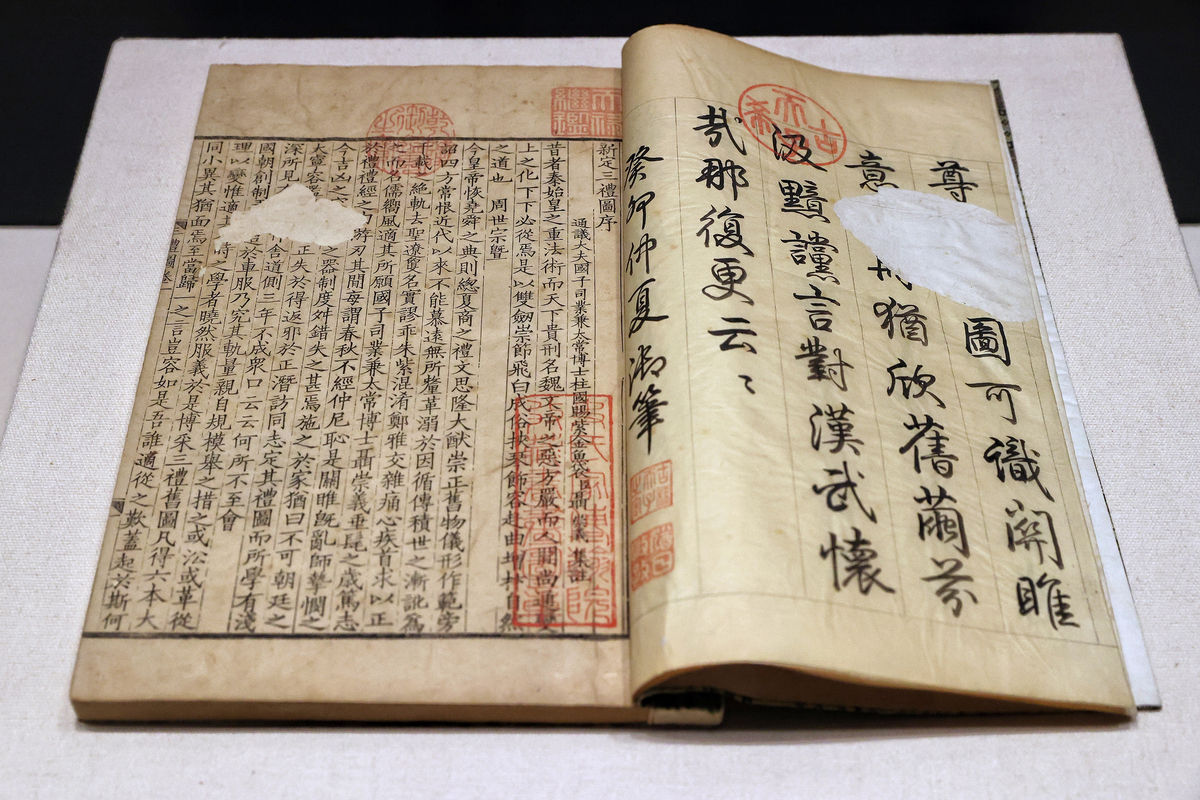 尊圖可識關雎
意猶欣舊芬
汲黯讜言對漢武懷
哉那復更云〻
癸卯仲夏御筆
古希天子
天祿繼鑑
新定三禮圖序
通議大夫國子司業兼太常博士柱國賜紫金魚袋臣聶崇義集註
昔者秦始皇之重法術而天下貴刑名魏文帝之惡方嚴而人間尚通變
上之化下下必從焉是以雙劍崇節飛白成俗挾琴飾容赴曲增抃自然
之道也 周世宗暨
今皇帝恢堯舜之典則總夏商之禮文思隆大猷崇正舊物儀形作範旁
詔四方常恨近代以來不能慕遠無所釐革溺於因循傳積世之漸訛為
千載絕軌去聖遼敻名實謬乖朱紫混淆鄭雅交雜痛心疾首求以正
之而名儒嚮風適其所願國子司業兼太常博士聶崇義垂髦之歲篤志
於禮禮經之內游刃其間每謂春秋不經仲尼恥是關雎旣亂師摯憫之
今吉凶之之器制度舛錯失之甚焉施之於家猶曰不可朝廷之
大容正失於得返邪於正潛訪同志定其禮圖而所學有淺
深所見舍道側三年不成衆口云云何所不至會
國朝創制於車服乃究其軌量親自規模舉之措之或沿或革從
理以變惟適時之學者曉然服義於是博采三禮舊圖凡得六本大
同小異其猶面焉至當歸一之言豈容如是吾誰適從之歎蓋起於斯何